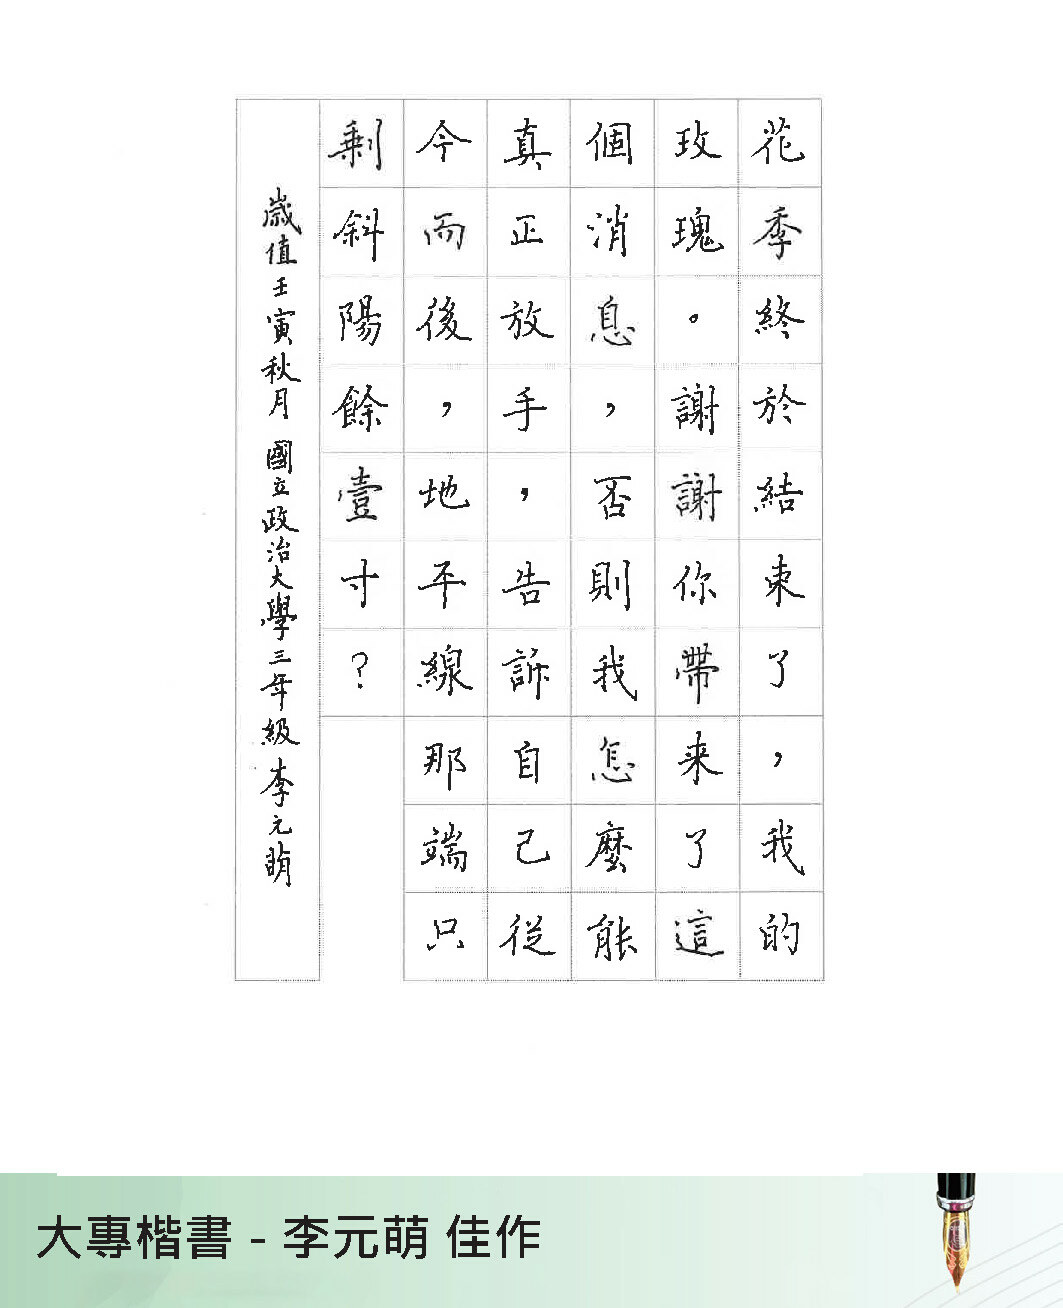 花季終於結束了，我的
玫瑰。謝謝你帶來了這
個消息，否則我怎麼能
真正放手，告訴自己從
今而後，地平線那端只
剩斜陽餘壹寸？
歲值壬寅秋月 國立政治大學三年級 李元萌
大專楷書 - 李元萌 佳作